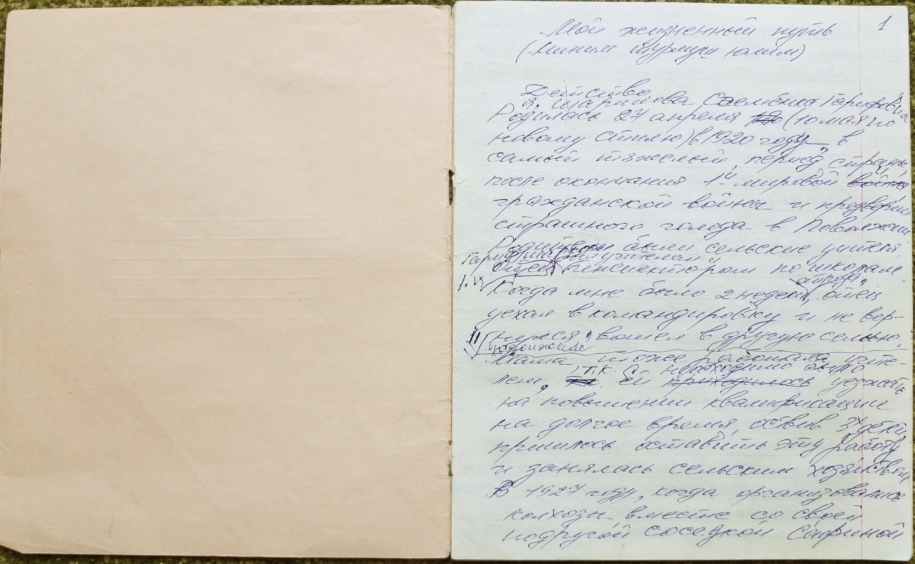 1
Мой жизненный путь
(Миним тормуш юлым)
Детство
Я, Шарипова Саембика Гарифовна
Родилась 27 апреля (10 мая по
новому стилю) в 1920 году, в
самый тяжелый период страны,
после окончания 1й мировой
гражданской войны и преддверии
страшного голода в Поволжии
Родители были сельские учителя
инспектором по школам.
Когда мне было 2 недели, отец
уехал в командировку и не вер-
нулся, вошел в другую семью,
Мама тоже работала учите-
лем, т.к. ей необходимо было уезжать
на повышении квалификации
на долгое время, оставив 3х детей,
пришлось оставить эту работу
и занялась сельским хозяйством
В 1927 году, когда организовались
колхозы вместе со своей
подругой соседкой